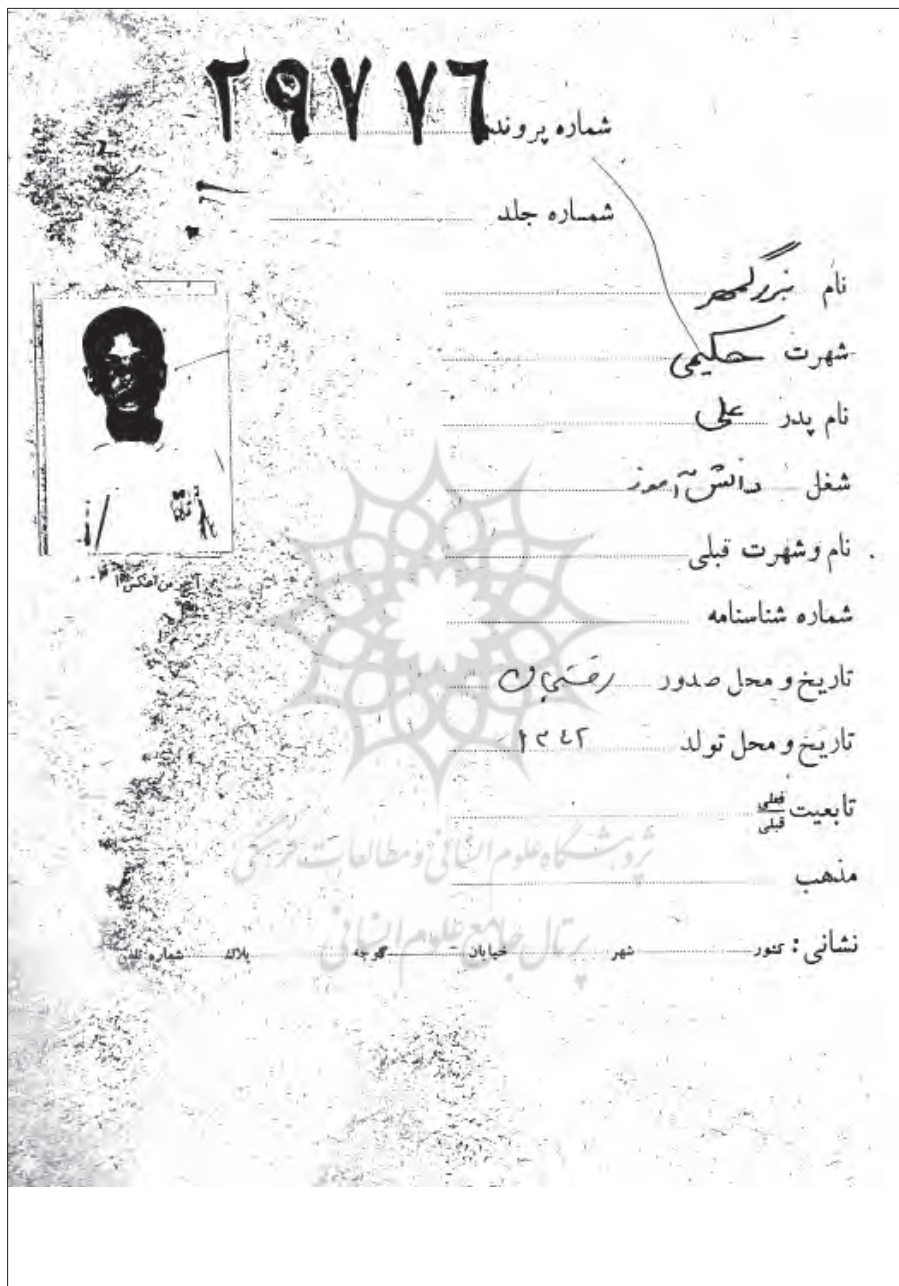 شماره پرونده ۲۹۷۷۶
شماره جلد
نام بزرگمهر
شهرت حکیمی
نام پدر علی
شغل دانش آموز
نام و شهرت قبلی
شماره شناسنامه
تاریخ و محل صدور رفسنجان
تاریخ و محل تولد ۱۳۴۲
تابعیت فعلی قبلی
مذهب
نشانی : کشور شهر خیابان کوچه پلاک شماره تلفن
پژوهشگاه علوم انسانی و مطالعات فرهنگی
پرتال جامع علوم انسانی